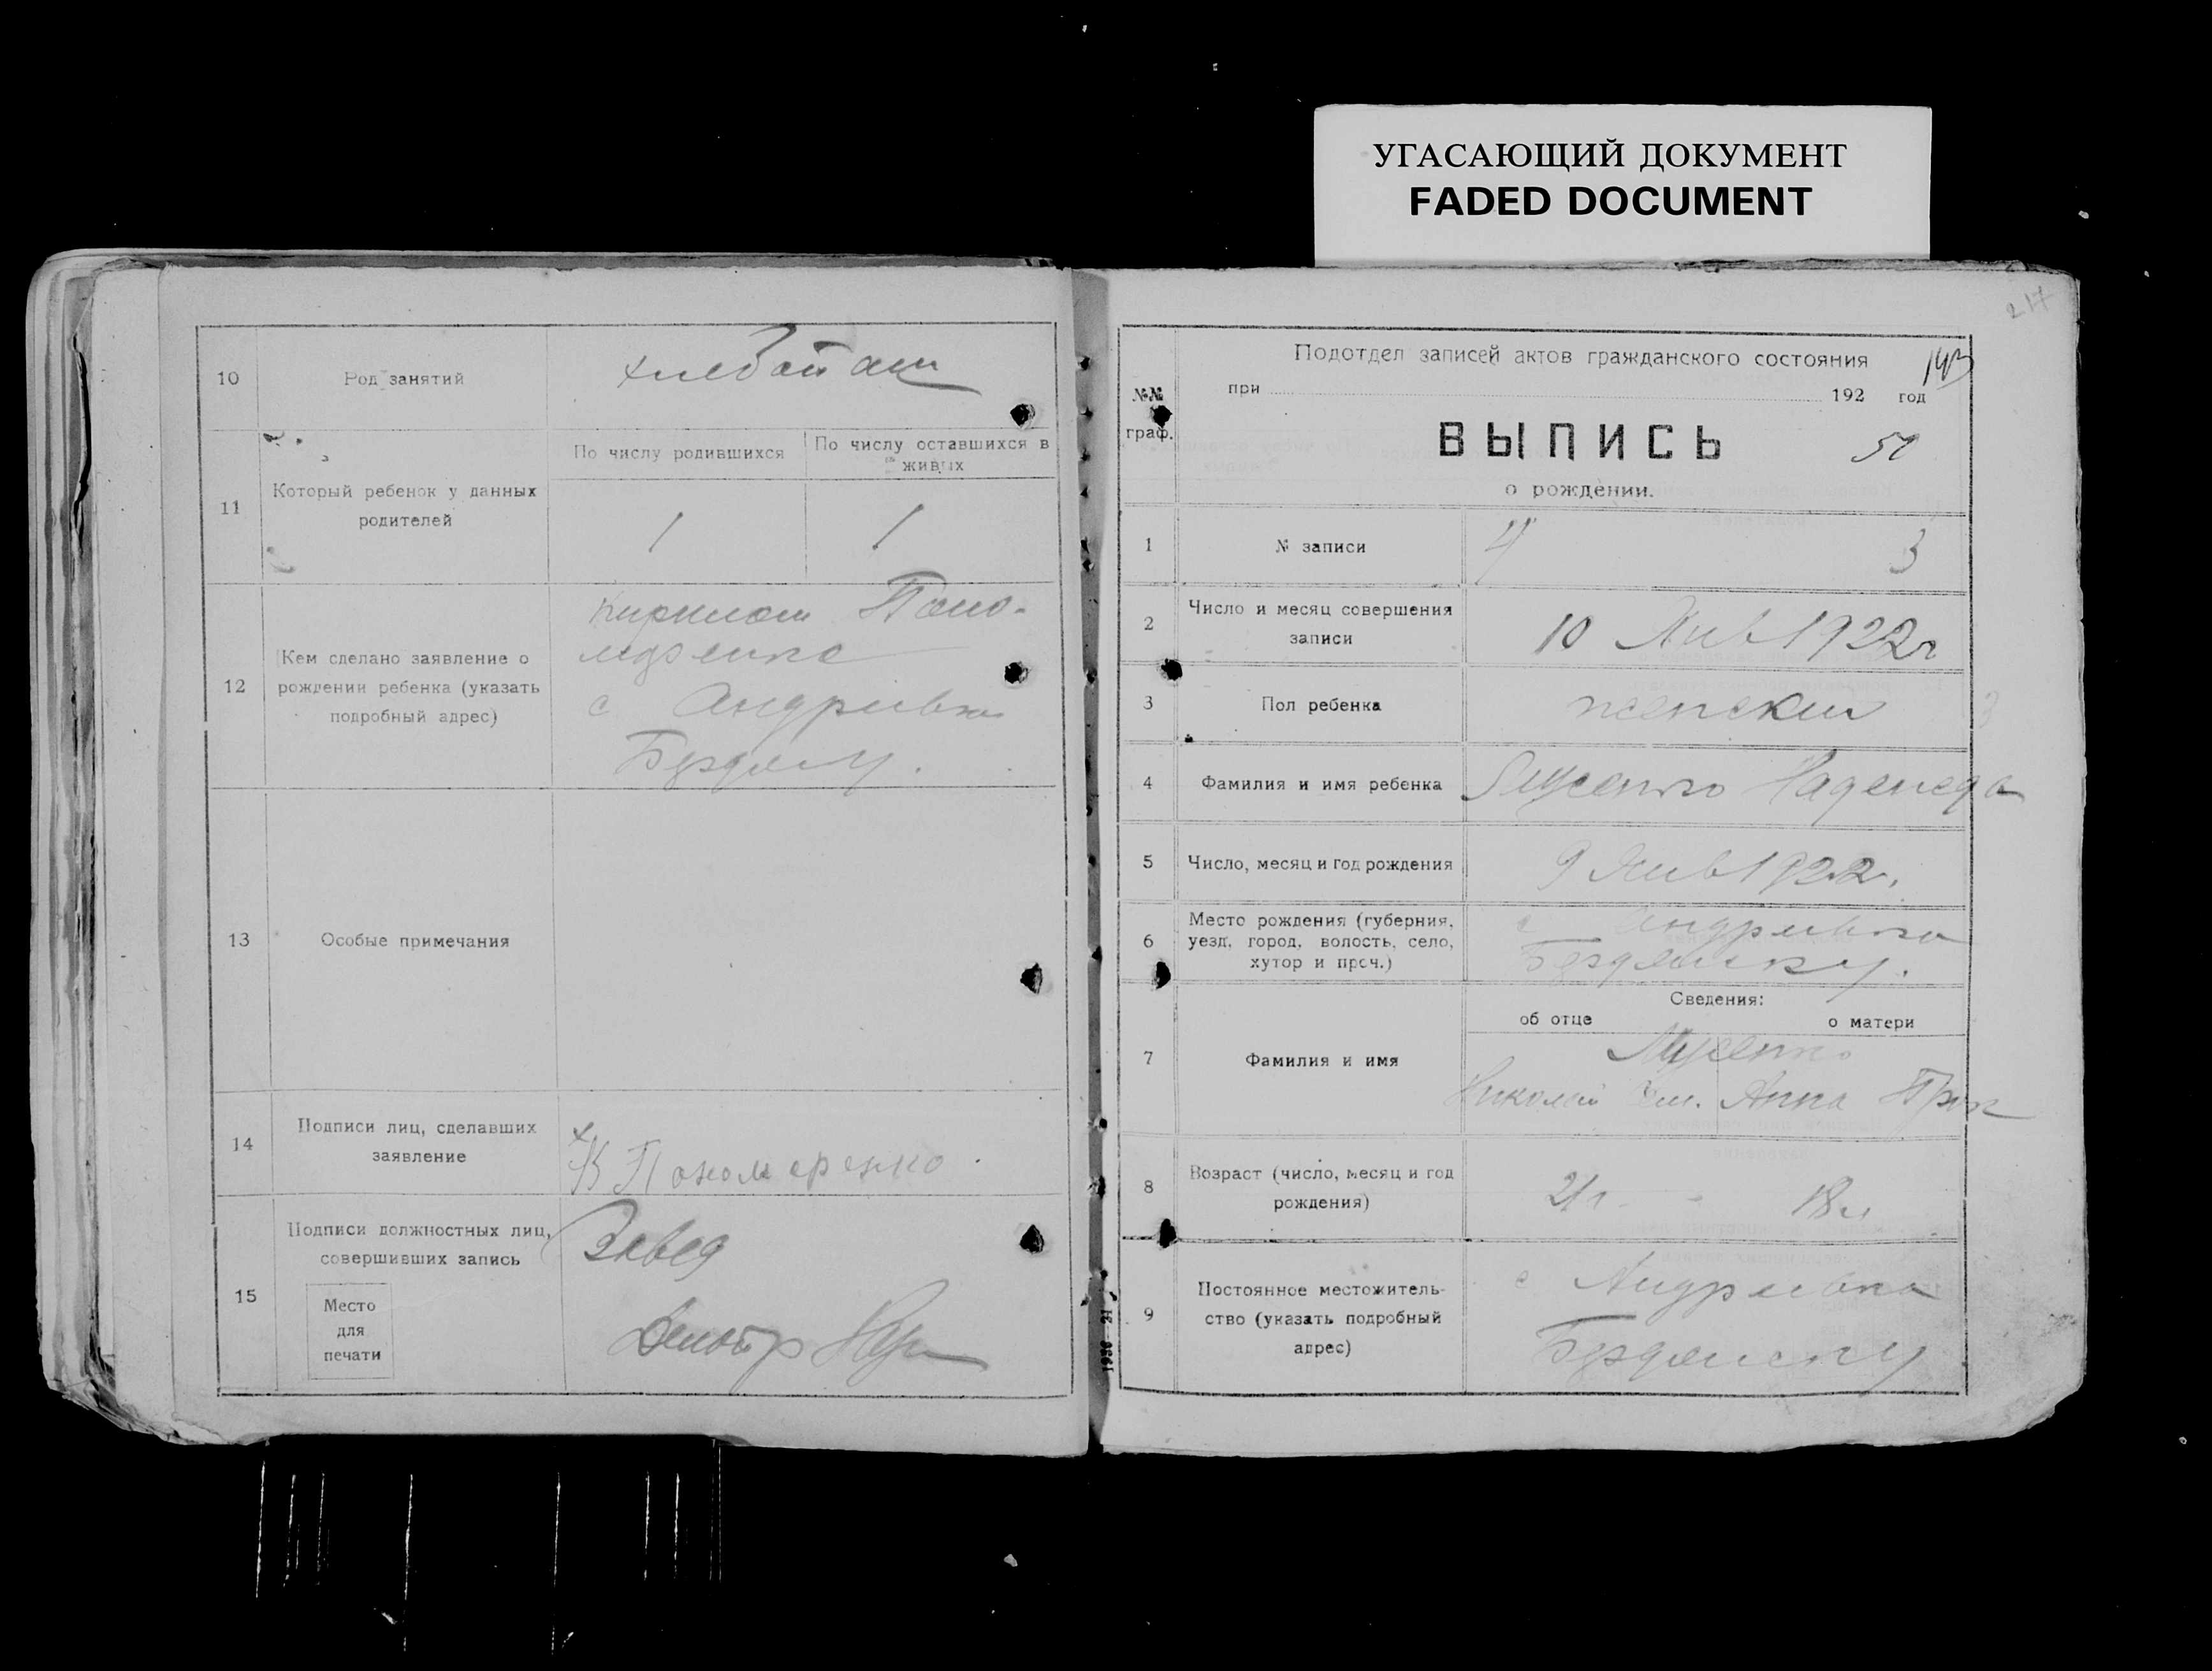 УГАСАЮЩИЙ ДОКУМЕНТ
FADED DOCUMENT
10
Род занятий
11
Который ребенок у данных
родителей
По числу родившихся
По числу оставшихся в
живых
1
1
12
Кем сделано заявление о
рождении ребенка (указать
подробный адрес)
с Андриивки
13
Особые примечания
14
Подписи лиц, сделавших
заявление
К Пономаренко.
15
Подписи должностных лиц,
совершивших запись
Место
для
печати
Завед
217
№№
граф.
Подотдел записей актов гражданского состояния
при 192 год
143
ВЫПИСЬ
50
о рождении.
1
№ записи
4
3
2
Число и месяц совершения
записи
10 Янв 1922г
3
Пол ребенка
женский
4
Фамилия и имя ребенка
Надежда
5
Число, месяц и год рождения
9 Янв 1922.
6
Место рождения (губерния,
уезд, город, волость, село,
хутор и проч.)
с Андриивка
Бердянску.
Сведения:
об отце
о матери
7
Фамилия и имя
Николай
Анна
8
Возраст (число, месяц и год
рождения)
21г.
18
9
Постоянное местожитель-
ство (указать подробный
адрес)
с Андриивка
Бердянску